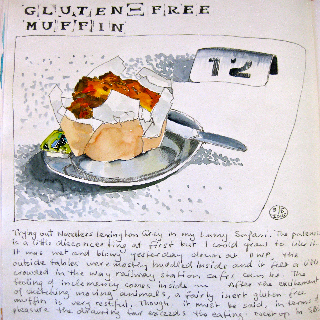 GLUTEN FREE
MUFFIN
12
Trying out Noodlers Lexington Grey in my Lamy Safari. The paleness
is a little disconcerting at first but I could grow to like it.
It was wet and blowy yesterday down at PMP, the
outside tables were mostly huddled inside and it felt a little
crowded in the way railway station cafes can be. The
feeling of inclemency comes inside. After the excitement
of sketching moving animals, a fairly inert gluten free
muffin is very restful. Though it must be said in terms of
pleasure the drawing far exceeds the eating